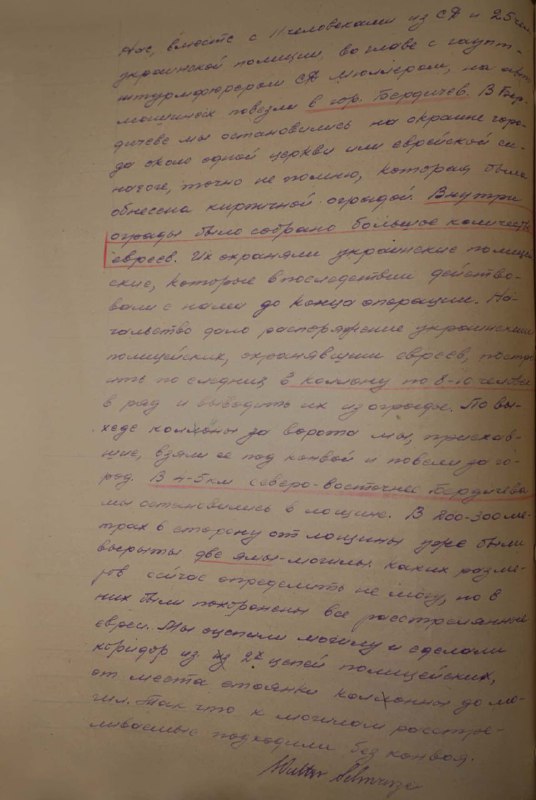 Нас, вместе с 11 человеками из СД и 25 чел.
украинской полиции, во главе с гаупт-
штурмфюрером СД Мюллером, на авто
машинах повезли в гор. Бердичев. В Бер-
дичеве мы остановились на окраине горо-
да около одной церкви или еврейской си-
нагоге, точно не помню, которая была
обнесена кирпичной оградой. Внутри
ограды было собрано большое количество
евреев. Их охраняли украинские полицей
ские, которые впоследствии действо-
вали с нами до конца операции. На-
чальство дало распоряжение украинским
полицейских, охранявшим евреев, постро
ить последних в колонну по 8-10 человек
в ряд и выводить их из ограды. По вы-
ходе колонны за ворота мы, приехав-
шие, взяли ее под конвой и повели за го-
род. В 4-5 км северо-восточнее Бердичева
мы остановились в лощине. В 200-300 ме-
трах в сторону от лощины уже были
вырыты две ямы-могилы каких разме-
ров сейчас определить не могу, но в
них были похоронены все расстрелянные
евреи. Мы оцепили могилу и сделали
коридор из 2х цепей полицейских,
от места стоянки колонны до мо-
гил. Так что к могилам расстре-
ливаемые подходили без конвоя.
Walter